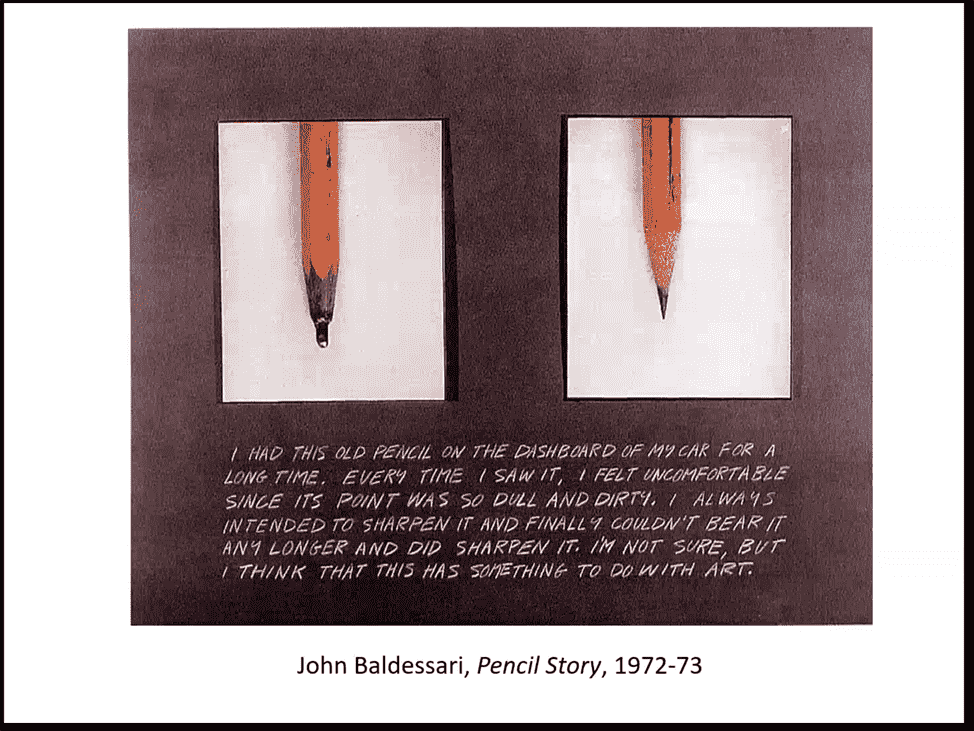 I HAD THIS OLD PENCIL ON THE DASHBOARD OF MY CAR FOR A
LONG TIME. EVERY TIME I SAW IT, I FELT UNCOMFORTABLE
SINCE ITS POINT WAS SO DULL AND DIRTY. I ALWAYS
INTENDED TO SHARPEN IT AND FINALLY COULDN'T BEAR IT
ANY LONGER AND DID SHARPEN IT. I'M NOT SURE, BUT
I THINK THAT THIS HAS SOMETHING TO DO WITH ART.
John Baldessari, Pencil Story, 1972-73